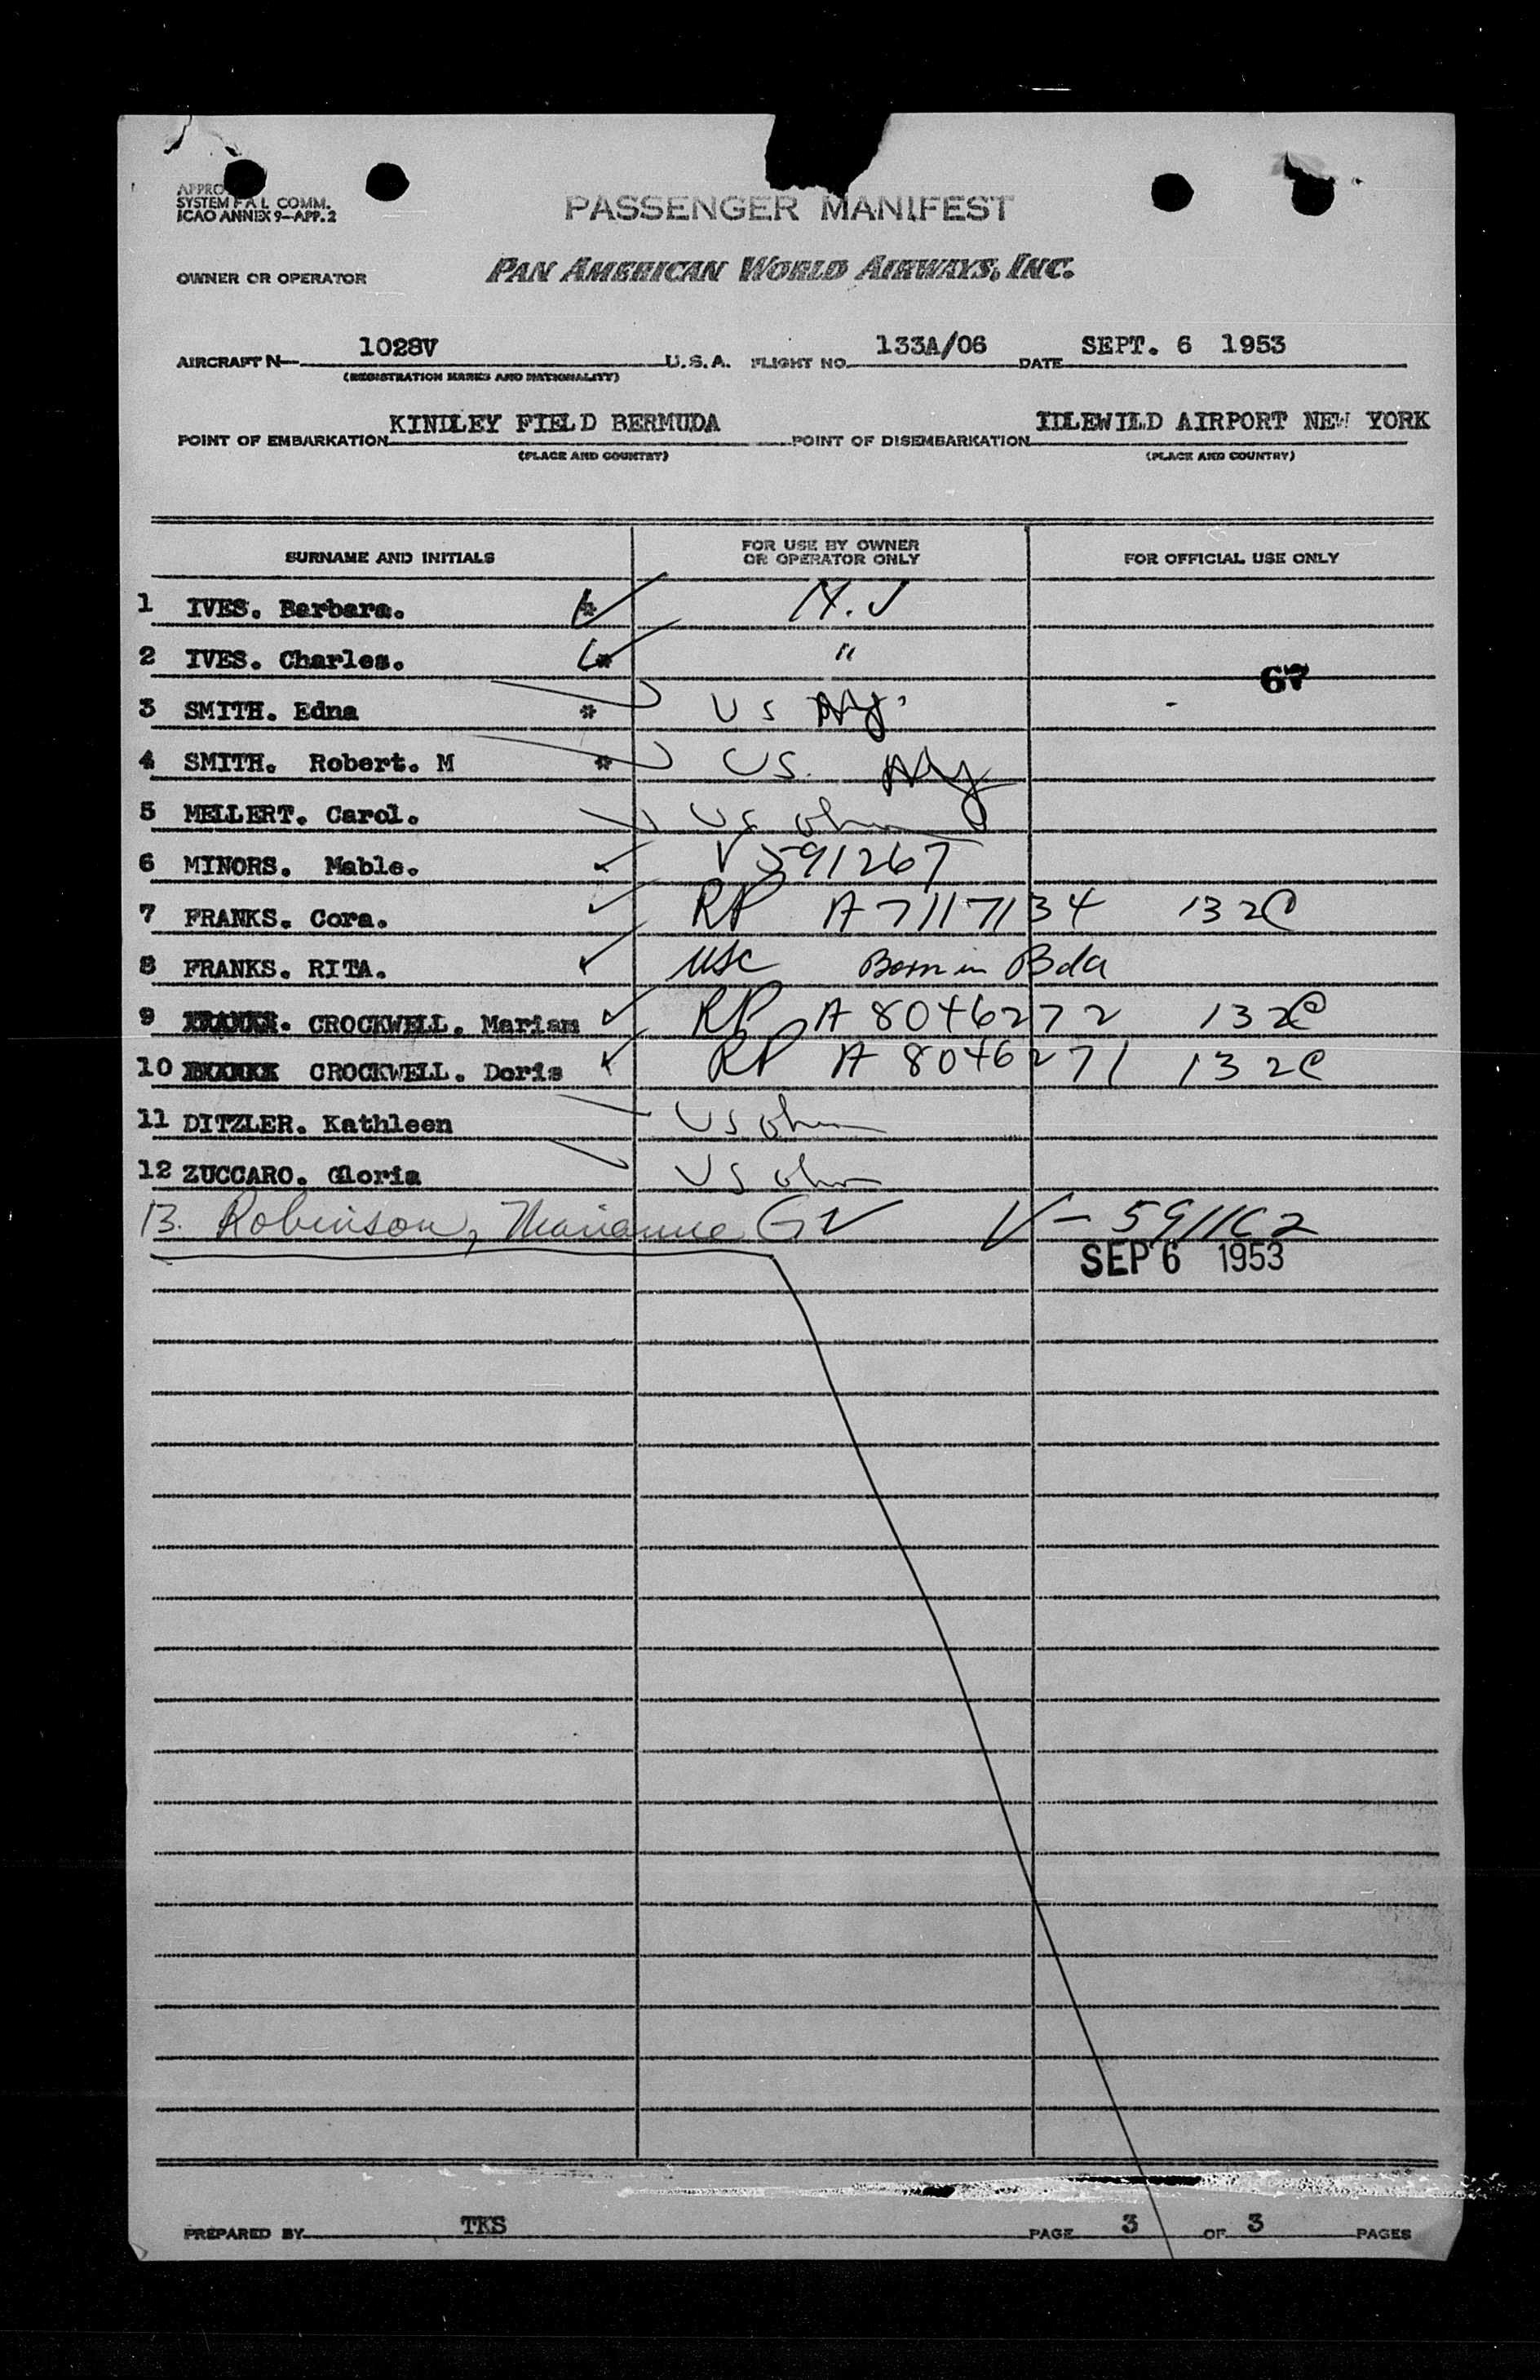 SYSTEM F A L COMM.
ICAO ANNEX 9-APP. 2
PASSENGER MANIFEST
OWNER OR OPERATOR PAN AMERICAN WORLD AIRWAYS, INC.
AIRCRAFT N- 1028V U.S.A. FLIGHT NO. 133A/06 DATE SEPT. 6 1953
(REGISTRATION MARKS AND NATIONALITY)
POINT OF EMBARKATION KINDLEY FIELD BERMUDA POINT OF DISEMBARKATION IDLEWILD AIRPORT NEW YORK
(PLACE AND COUNTRY) (PLACE AND COUNTRY)
SURNAME AND INITIALS FOR USE BY OWNER OR OPERATOR ONLY FOR OFFICIAL USE ONLY
1 IVES. Barbara. * N.J
2 IVES. Charles. * "
67
3 SMITH. Edna * US NY.
4 SMITH. Robert. M * US. NY
5 MELLERT. Carol. US
6 MINORS. Mable. V 591267
7 FRANKS. Cora. RP A7117134 132C
8 FRANKS. RITA. USC Born in Bda
9 CROCKWELL. Mariam RP A 8046272 132C
10 CROCKWELL. Doris RP A 8046271 132C
11 DITZLER. Kathleen US
12 ZUCCARO. Gloria US
13. Robinson, Marianne G V-591162
SEP 6 1953
PREPARED BY TKS PAGE 3 OF 3 PAGES